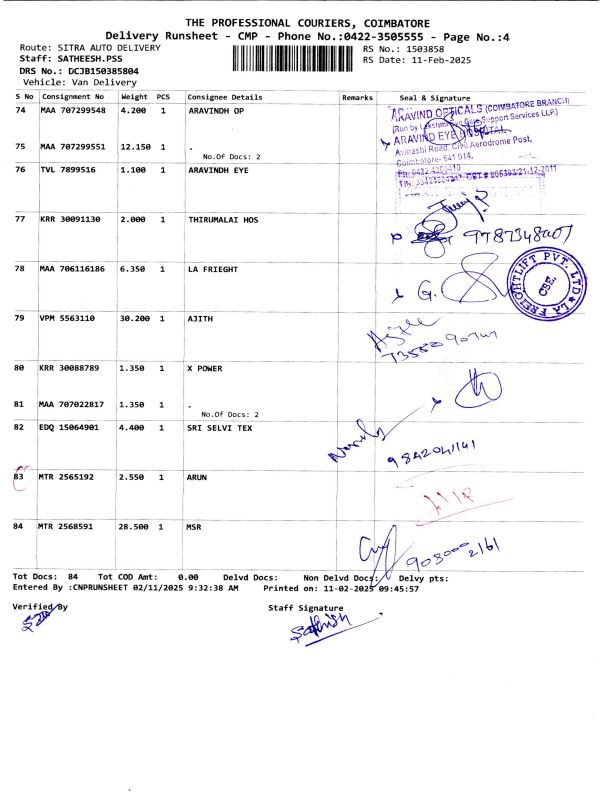 THE PROFESSIONAL COURIERS, COIMBATORE
Delivery Runsheet - CMP - Phone No.:0422-3505555 - Page No.:4
Route: SITRA AUTO DELIVERY
RS No.: 1503858
Staff: SATHEESH.PSS
RS Date: 11-Feb-2025
DRS No.: DCJB150385804
Vehicle: Van Delivery
S No Consignment No Weight PCS Consignee Details Remarks Seal & Signature
74 MAA 707299548 4.200 1 ARAVINDH OP
ARAVIND OPTICALS (COIMBATORE BRANCH)
(Run by Lakshmi Eye Care Support Services LLP.)
ARAVIND EYE HOSPITAL,
75 MAA 707299551 12.150 1 .
Avinashi Road, Civil Aerodrome Post,
No.Of Docs: 2
Coimbatore- 641 014.
76 TVL 7899516 1.100 1 ARAVINDH EYE
77 KRR 30091130 2.000 1 THIRUMALAI HOS
9787348007
78 MAA 706116186 6.350 1 LA FRIEGHT
G.
LA FREIGHTLIFT PVT. LTD
CBE.
79 VPM 5563110 30.200 1 AJITH
80 KRR 30088789 1.350 1 X POWER
81 MAA 707022817 1.350 1 .
No.Of Docs: 2
82 EDQ 15064901 4.400 1 SRI SELVI TEX
9842041141
83 MTR 2565192 2.550 1 ARUN
84 MTR 2568591 28.500 1 MSR
9080002161
Tot Docs: 84 Tot COD Amt: 0.00 Delvd Docs: Non Delvd Docs: Delvy pts:
Entered By :CNPRUNSHEET 02/11/2025 9:32:38 AM Printed on: 11-02-2025 09:45:57
Verified By
Staff Signature
Sathish